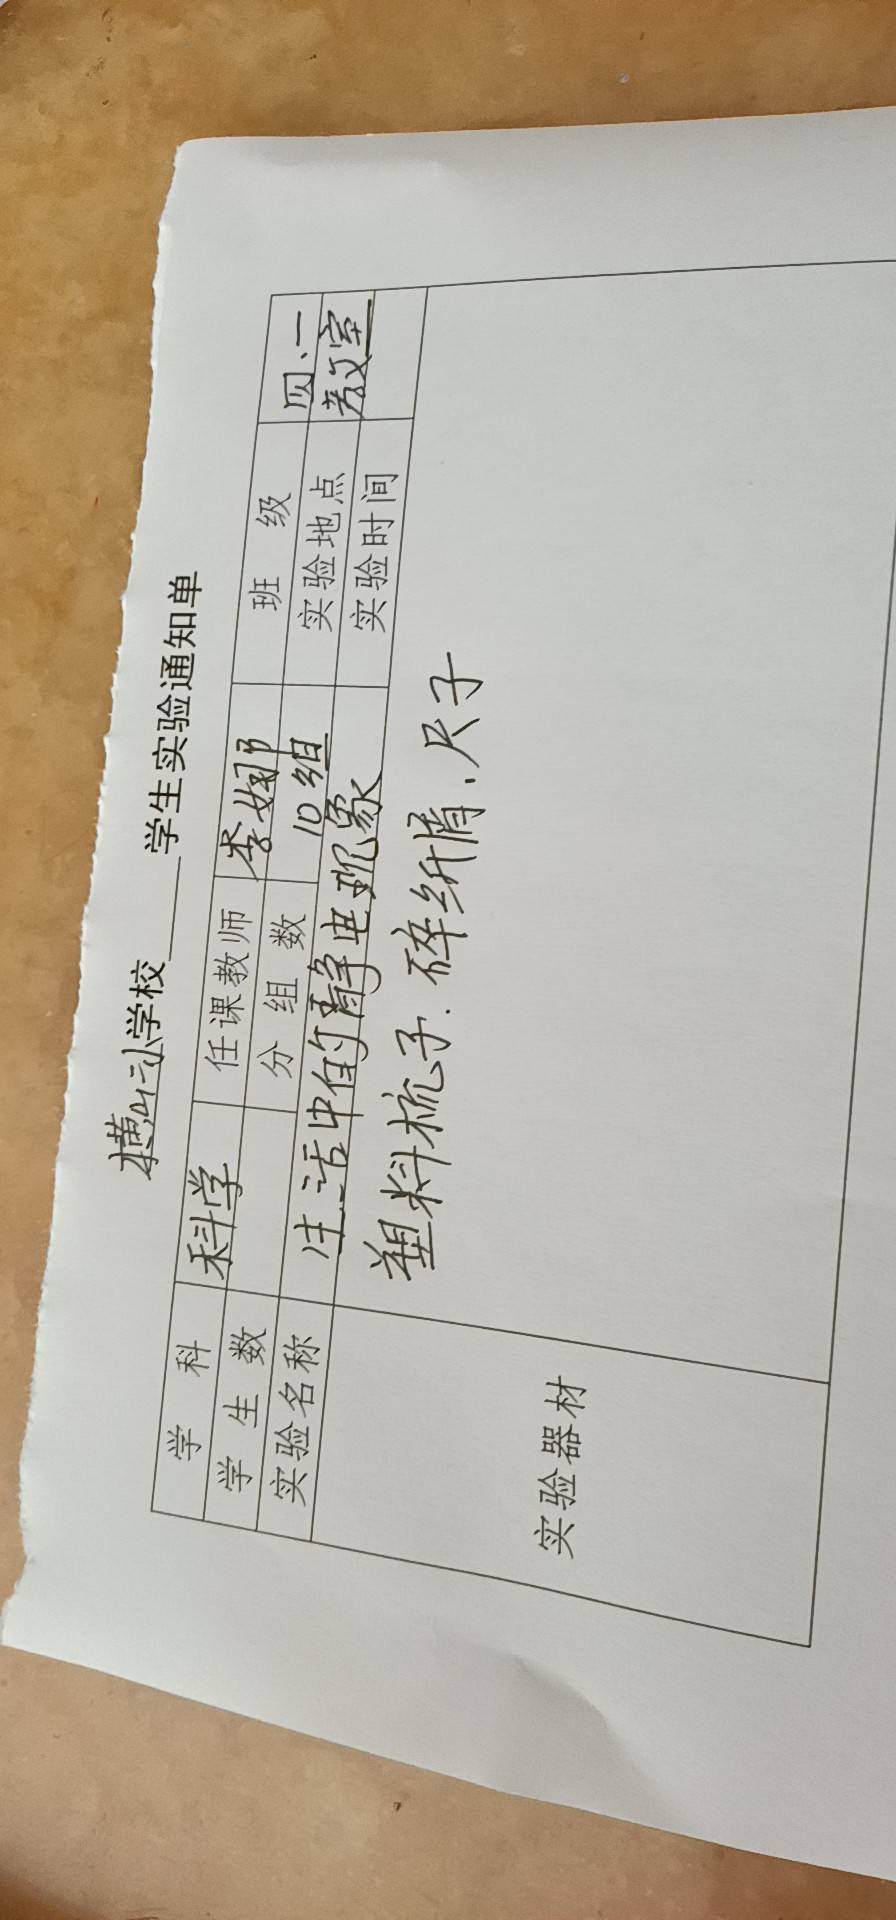 横山小学校____学生实验通知单
学 科 科学 任课教师 李娜 班 级 四、一
学 生 数 分 组 数 10组 实验地点 教室
实验名称 生活中的静电现象 实验时间
实验器材 塑料梳子、碎纸屑、尺子